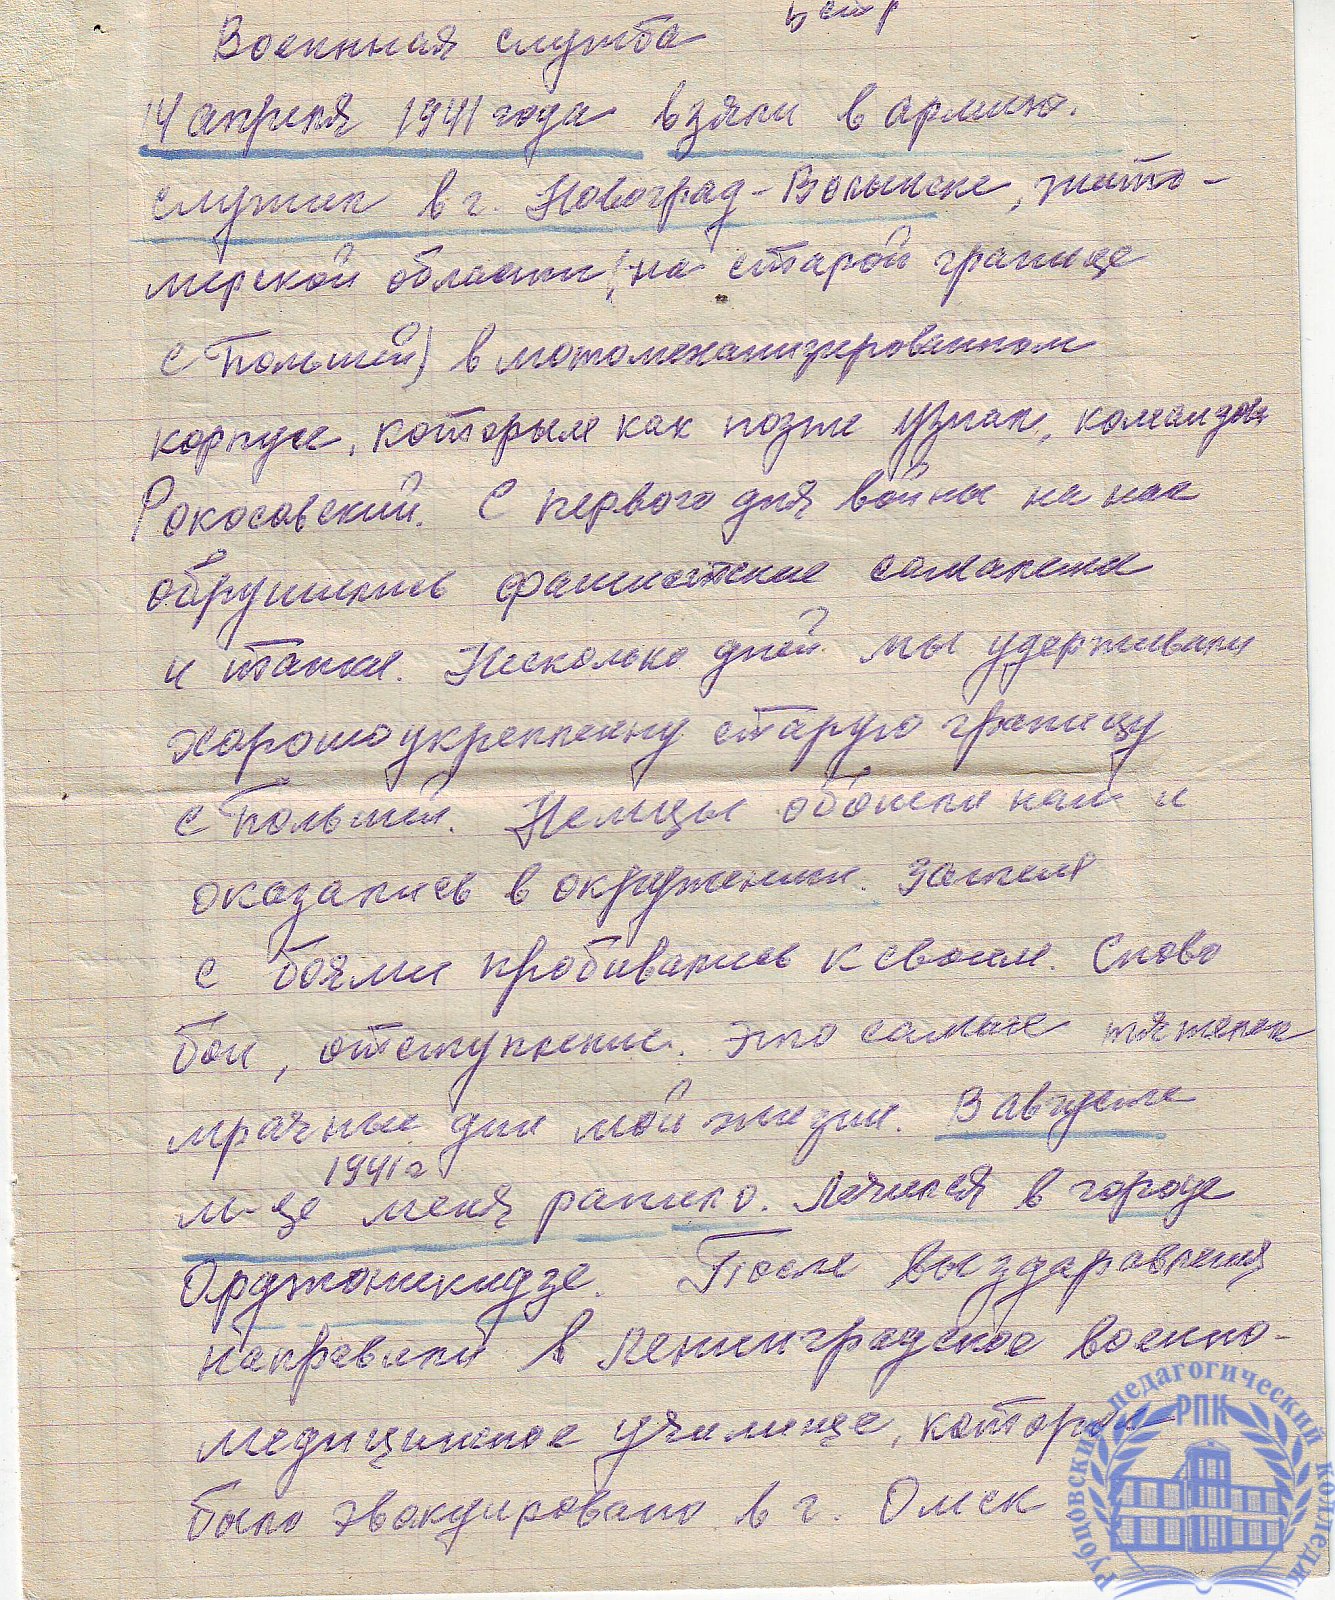 Военная служба
14 апреля 1941 года взяли в армию.
служил в г. Новоград-Волынске, жито-
мирской области, (на старой границе
с Польшей) в мотомеханизированном
корпусе, которым как позже узнал, командов
Рокосовский. С первого дня войны на нас
обрушились фашистские самолеты
и танки. Несколько дней мы удерживали
хорошо укрепленну старую границу
с Польшей. Немцы обошли нас и
оказались в окружении. Затем
с боями пробивались к своим. Снова
бои, отступление. Это самые тяжелые
мрачные дни мой жизни. В августе
1941 г
м-це меня ранило. Лечился в городе
Орджоникидзе. После выздаровления
направили в Ленинградское военно-
медицинское училище, которое
было эвакуировано в г. Омск
Рубцовский педагогический колледж
РПК